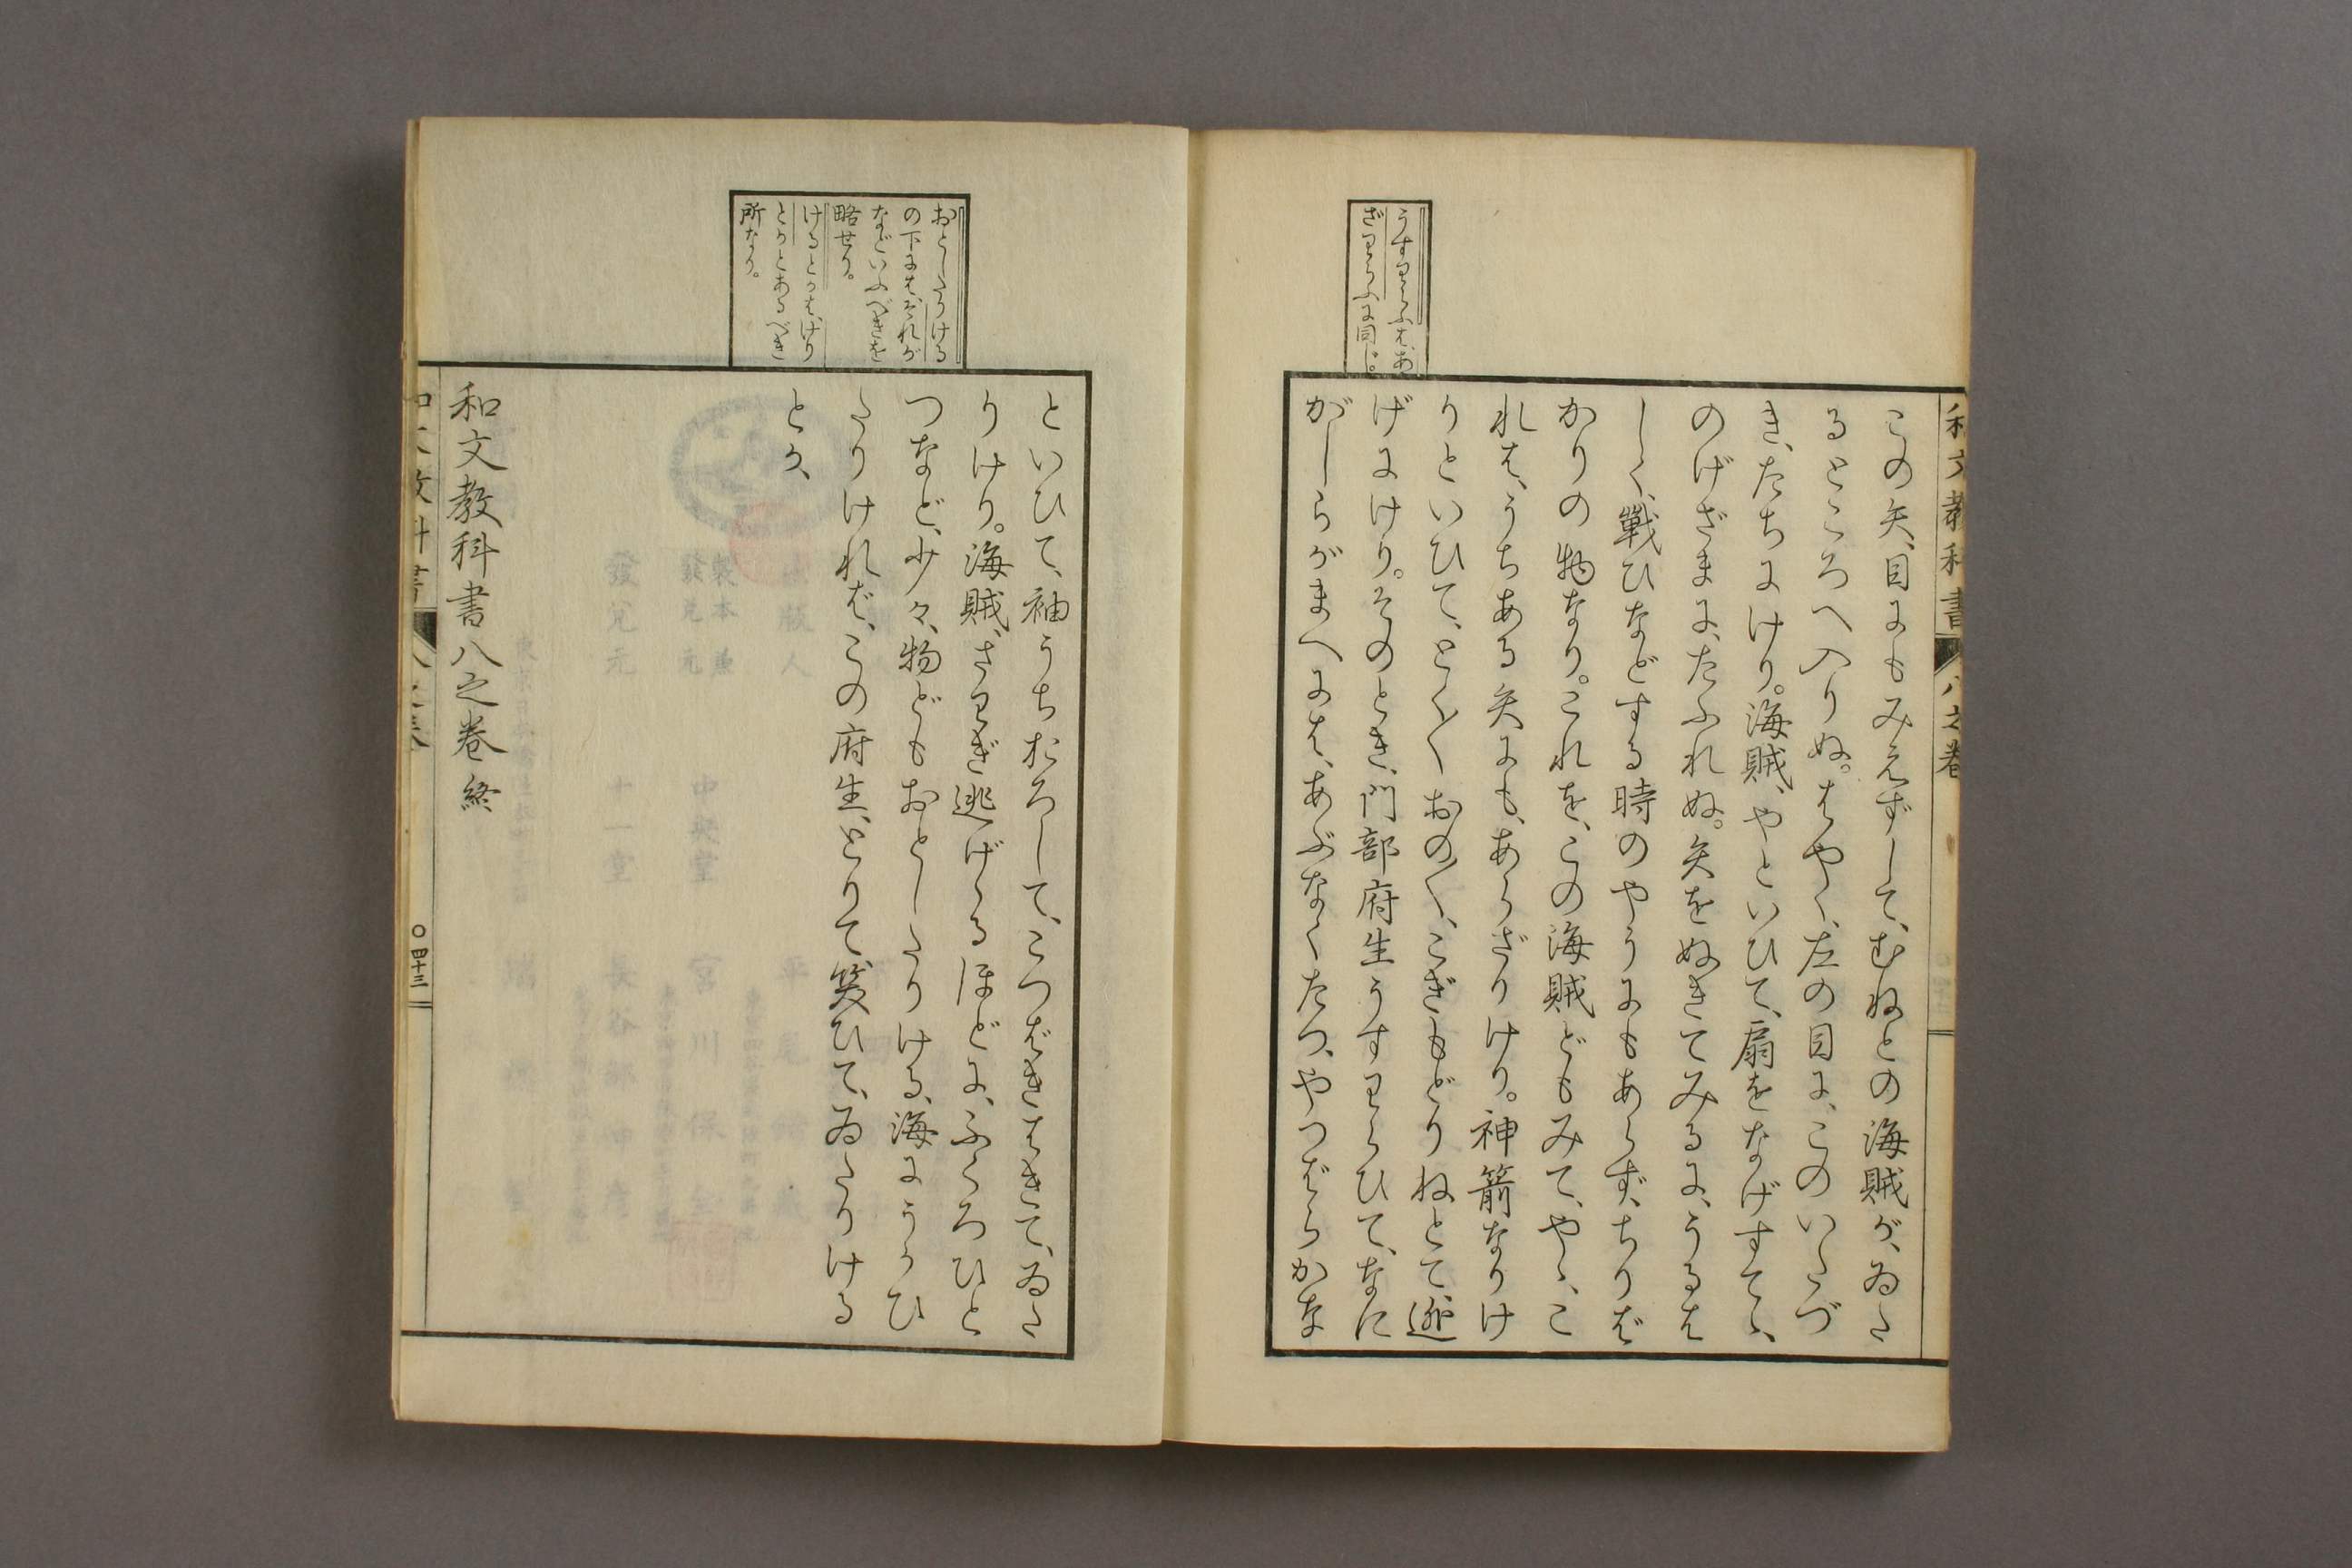 和文教科書 八之卷
うすわらふは、あ
ざわらふに同じ。
この矢、目にもみえずして、むねとの海賊が、ゐた
るところへ入りぬ。はやく、左の目に、このいたづ
き、たちにけり。海賊、やといひて、扇をなげすてゝ、
のげざまに、たふれぬ。矢をぬきてみるに、うるは
しく、戰ひなどする時のやうにもあらず、ちりば
かりの物なり。これを、この海賊どもみて、やゝ、こ
れは、うちある矢にも、あらざりけり。神箭なりけ
りといひて、とく〳〵おの〳〵、こぎもどりねとて、逃
げにけり。そのとき、門部府生うすわらひて、なに
がしらがまへには、あぶなくたつ、やつばらかな
といひて、袖うちおろして、こつばきはきて、ゐた
りけり。海賊、さわぎ逃げくるほどに、ふくろひと
つなど、少々、物どもおとしたりける、海にうかひ
たりければ、この府生、とりて笑ひて、ゐたりける
とか、
おとしたりける
の下には、ぞれが
などいふべきを
略せり。
けるとかは、けり
とかとあるべき
所なり。
和文教科書八之卷 終
〇四十三